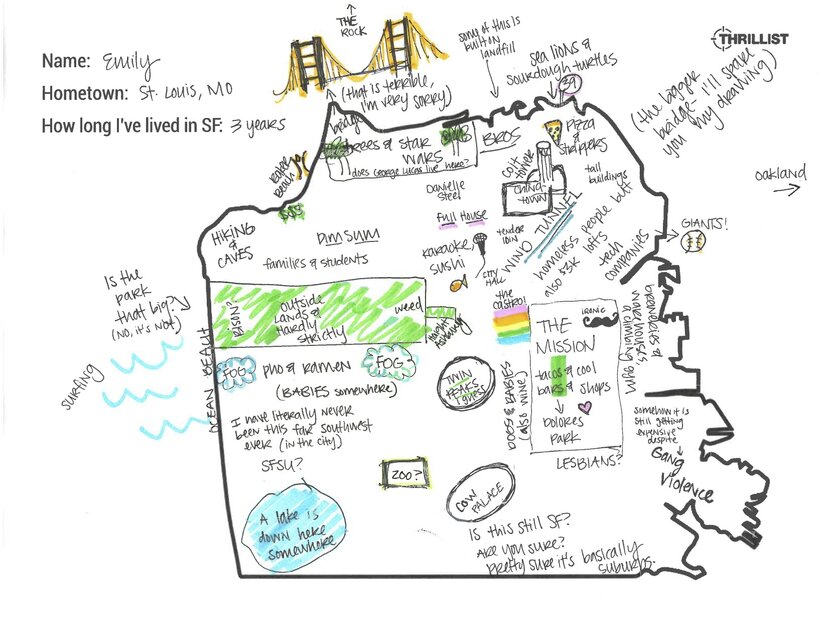 THE
ROCK
THRILLIST
Name: Emily
Hometown: St. Louis, MO
How long I've lived in SF: 3 years
(that is terrible,
I'm very sorry)
bridge
some of this is
built on
landfill
sea lions &
sourdough turtles
39
(the bigger
bridge - I'll spare
you my drawing)
oakland
trees & star
wars
does george lucas live here?
BROS
pizza
& strippers
coit tower
tall
buildings
baker
beach
Danielle
Steel
china-
town
Full House
HIKING
&
CAVES
Dim Sum
families & students
karaoke,
sushi
tender
loin
CITY
HALL
WIND TUNNEL
homeless people but
also $3K lofts
tech
companies
GIANTS!
Is the
park
that big?
(No, it's not)
BISON?
OUTSIDE
LANDS &
HARDLY
STRICTLY
weed
haight
Ashbury
the castro!
IRONIC
THE
MISSION
tacos & cool
bars & shops
Dolores
Park
surfing
OCEAN BEAUT
FOG
pho & ramen
FOG
(BABIES somewhere)
TWIN
PEAKS
I guess
DOGS & BABIES
(also wine)
breweries &
warehouses
a climbing gym
I have literally never
been this far southwest
ever (in the city)
SFSU?
ZOO?
LESBIANS?
somehow it is
still getting
expensive
despite
Gang
Violence
A lake is
down here
somewhere
COW
PALACE
Is this still SF?
Are you sure?
Pretty sure it's basically
suburbs.